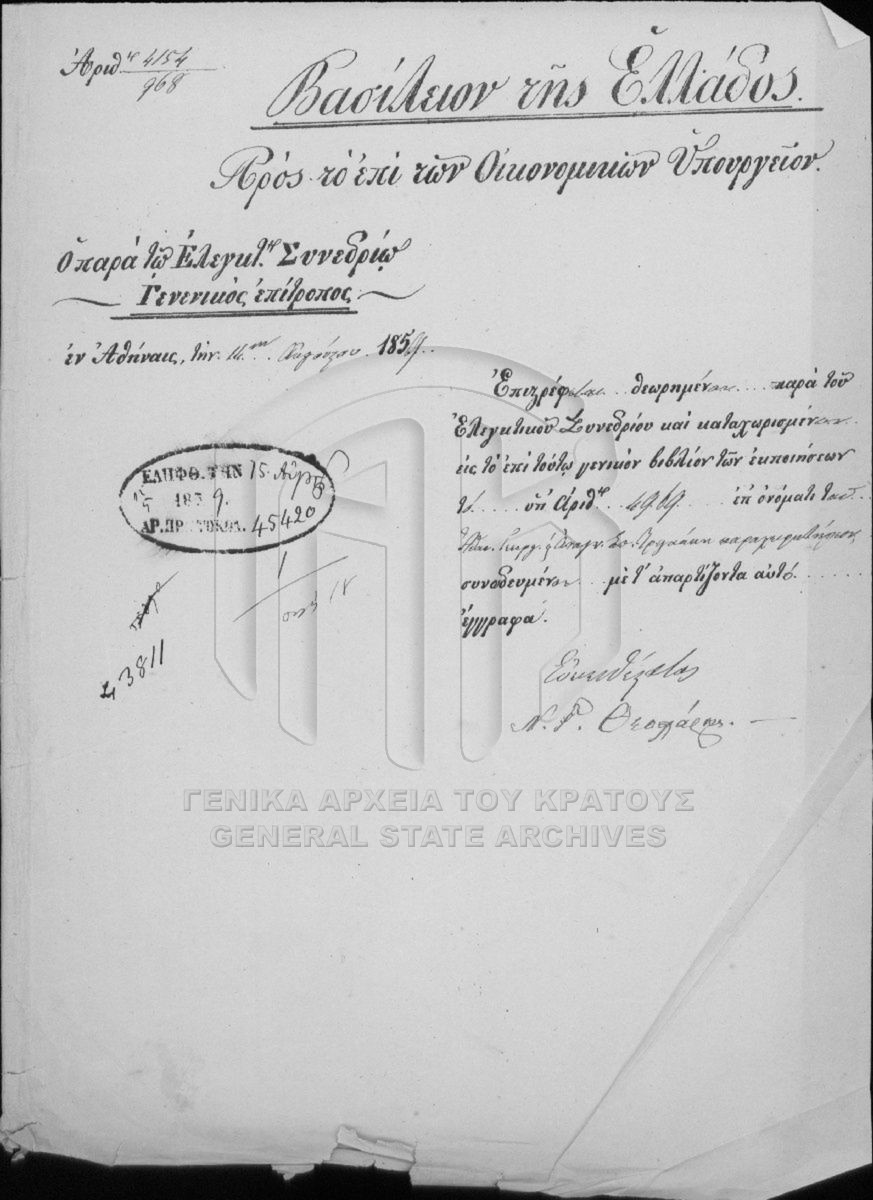 Ἀριθ. 4154
968
Βασίλειον τῆς Ἑλλάδος.
Πρός τό ἐπί τῶν Οἰκονομικῶν Ὑπουργεῖον.
Ὁ παρά τῷ Ἐλεγκτ. Συνεδρίῳ
Γενενικός ἐπίτροπος
ἐν Ἀθήναις, τήν 14 Αὐγούστου 1859.
Ἐπιστρέφεται θεωρημένον παρά τοῦ
Ἐλεγκτικοῦ Συνεδρίου καί καταχωρισμένον
εἰς τό ἐπί τούτῳ γενικόν βιβλίον τῶν ἐκποιήσεων
τό ὑπ' ἀριθ. 4969 ἐπ' ὀνόματι τοῦ
παραχωρητήριον
συνοδευμένον μέ τ' ἀπαρτίζοντα αὐτό
ἔγγραφα.
Εὐπειθέστατος
ΕΛΗΦΘ. ΤΗΝ 15 Αὐγ
1859.
ΑΡ. ΠΡΩΤΟΚΟΛ. 45420
1
43811
ΓΕΝΙΚΑ ΑΡΧΕΙΑ ΤΟΥ ΚΡΑΤΟΥΣ
GENERAL STATE ARCHIVES